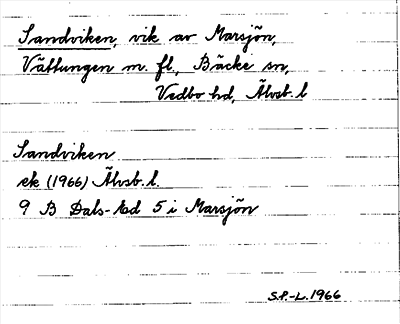 Sandviken, vik av Marsjön,
Vättungen m. fl., Bäcke sn,
Vedbo hd, Älvsb. l
Sandviken
ek (1966) Älvsb. l.
9 B Dals-Ed 5 i Marsjön
S.P.-L. 1966